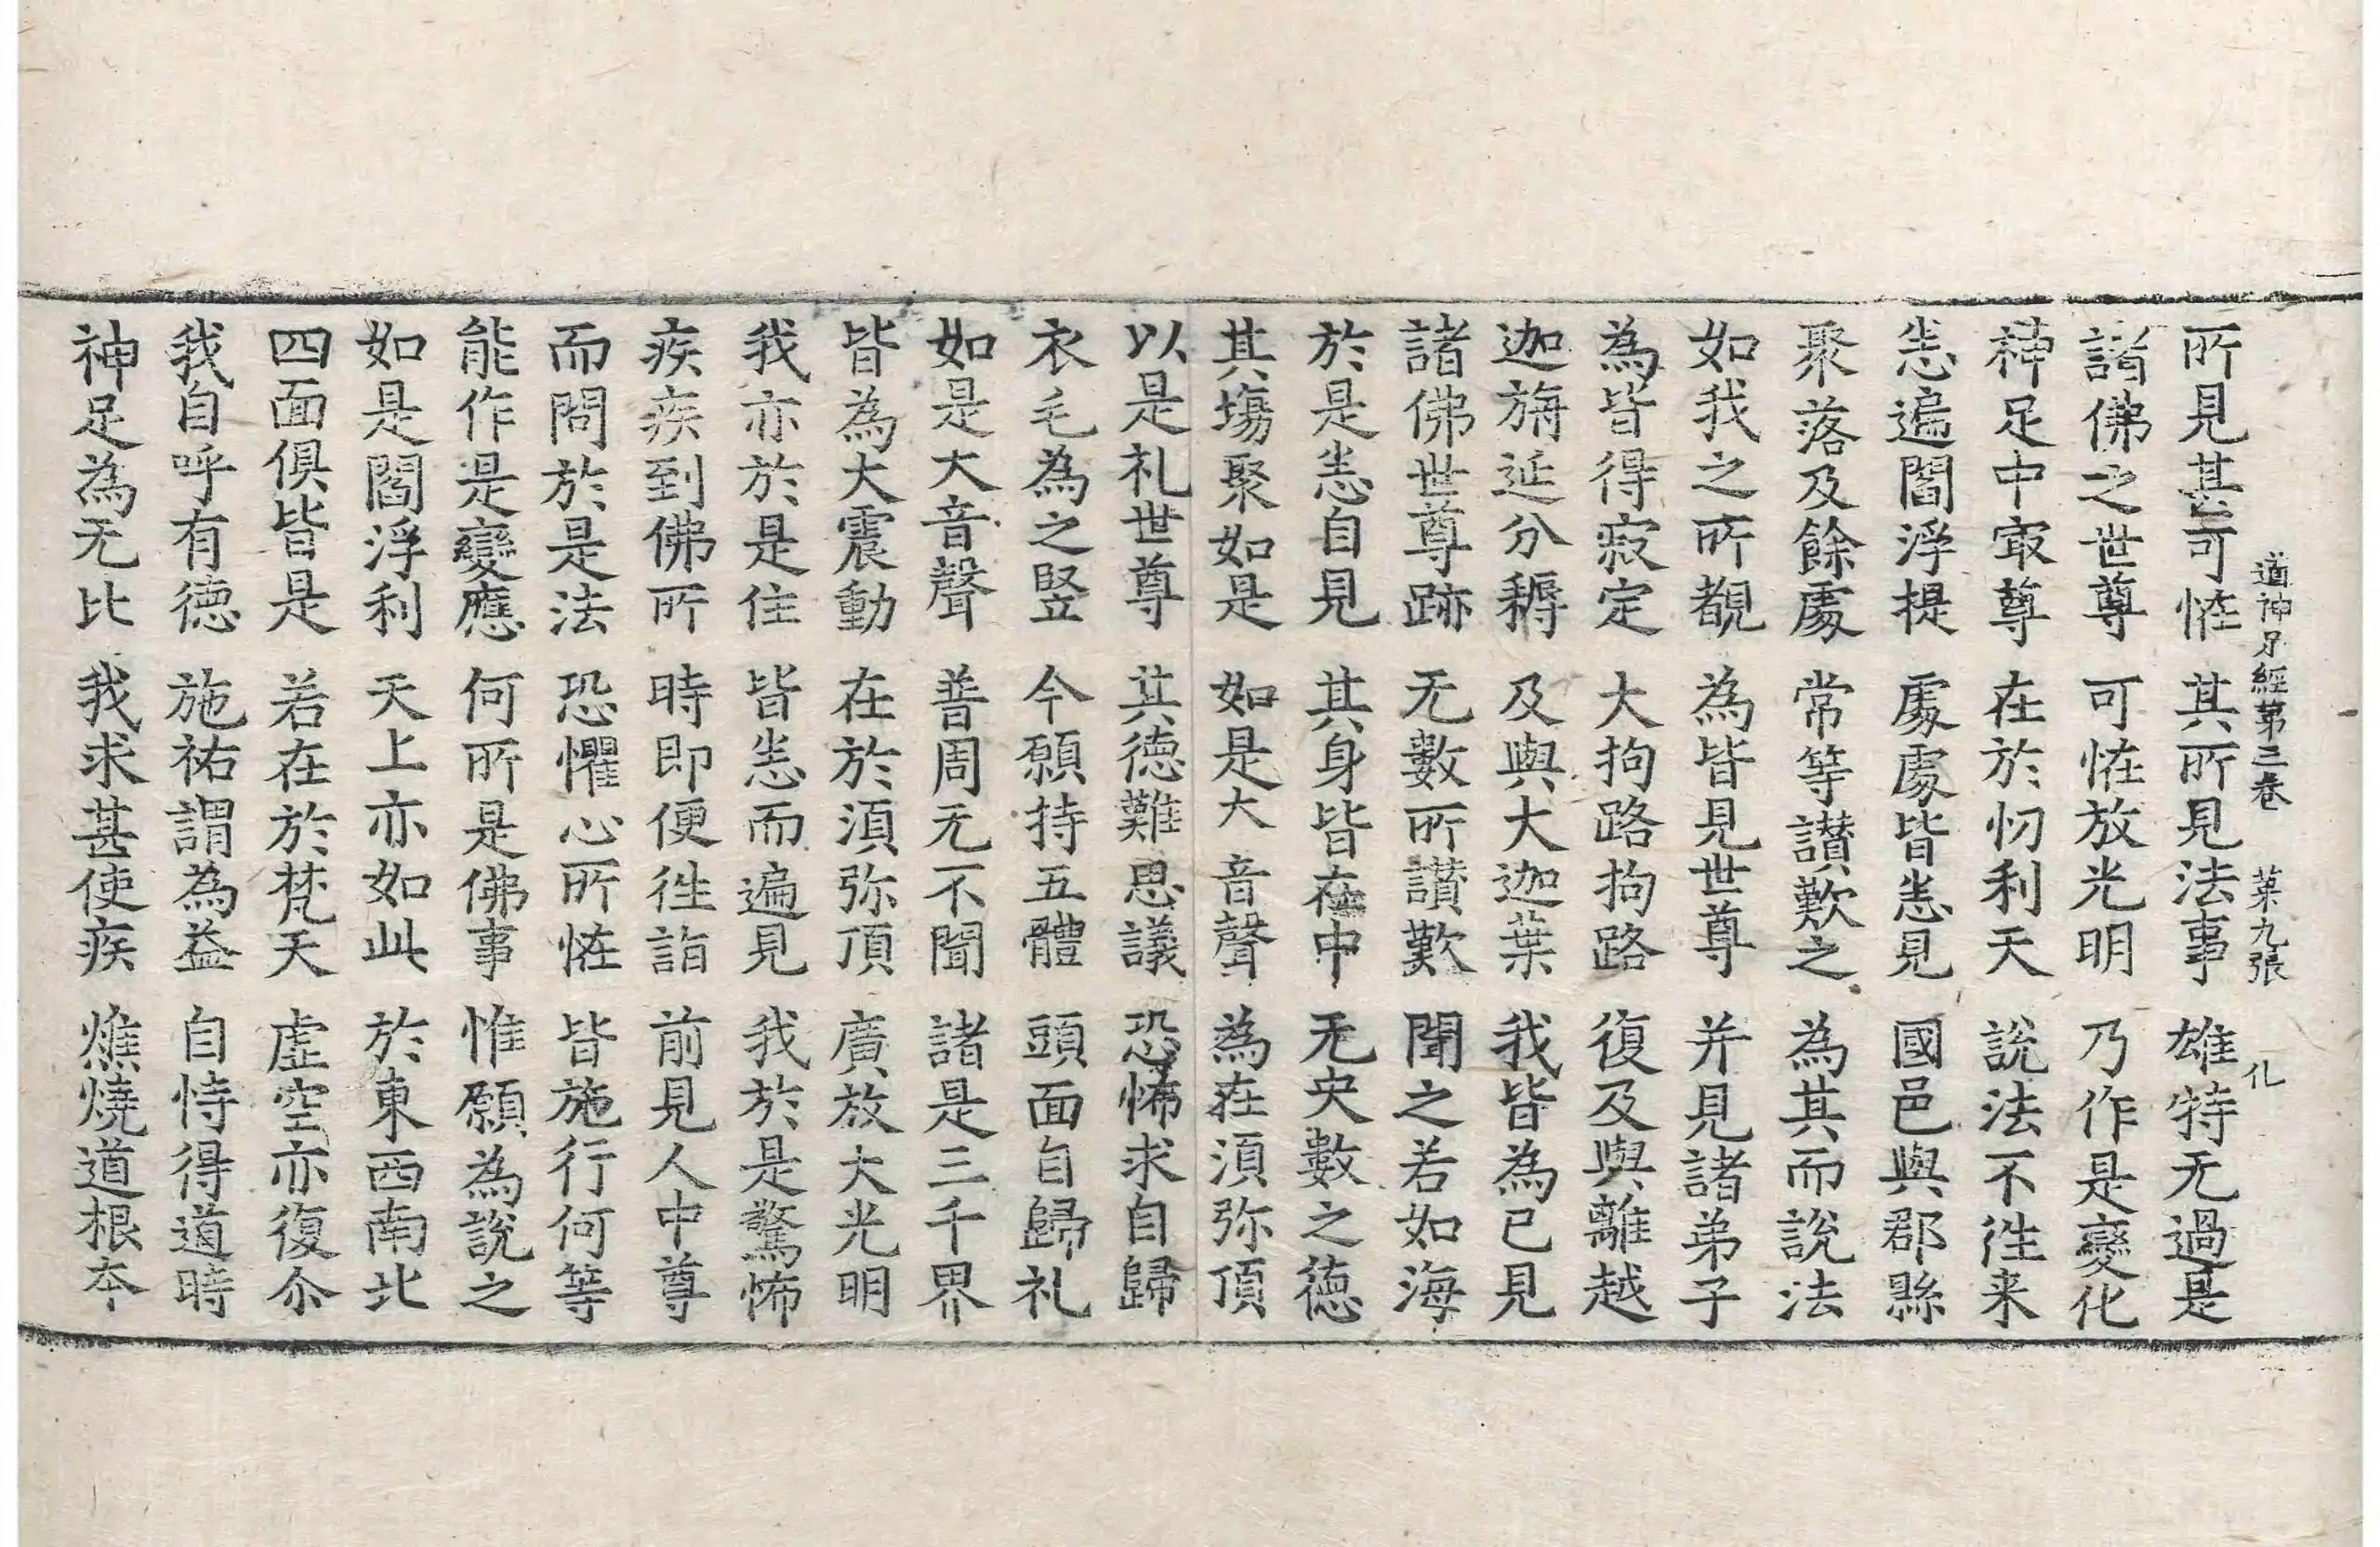 道神足經第三卷 第九張 化
所見甚可恠 其所見法事 雄特无過是
諸佛之世尊 可恠放光明 乃作是變化
神足中㝡尊 在於忉利天 說法不徃来
悉遍閻浮提 處處皆悉見 國邑與郡縣
聚落及餘處 常等讃歎之 為其而說法
如我之所覩 為皆見世尊 并見諸弟子
為皆得寂定 大拘路拘路 復及與離越
迦旃延分耨 及與大迦葉 我皆為已見
諸佛世尊跡 无數所讃歎 聞之若如海
於是悉自見 其身皆在中 无央數之德
其塲聚如是 如是大音聲 為在湏弥頂
以是礼世尊 其德難思議 恐怖求自歸
衣毛為之竪 今願持五體 頭面自歸礼
如是大音聲 普周无不聞 諸是三千界
皆為大震動 在於湏弥頂 廣放大光明
我亦於是住 皆悉而遍見 我於是驚怖
疾疾到佛所 時即便徃詣 前見人中尊
而問於是法 恐懼心所恠 皆施行何等
能作是變應 何所是佛事 惟願為說之
如是閻浮利 天上亦如此 於東西南北
四面俱皆是 若在於梵天 虛空亦復尒
我自呼有德 施祐謂為益 自恃得道時
神足為无比 我求甚使疾 燋燒道根本